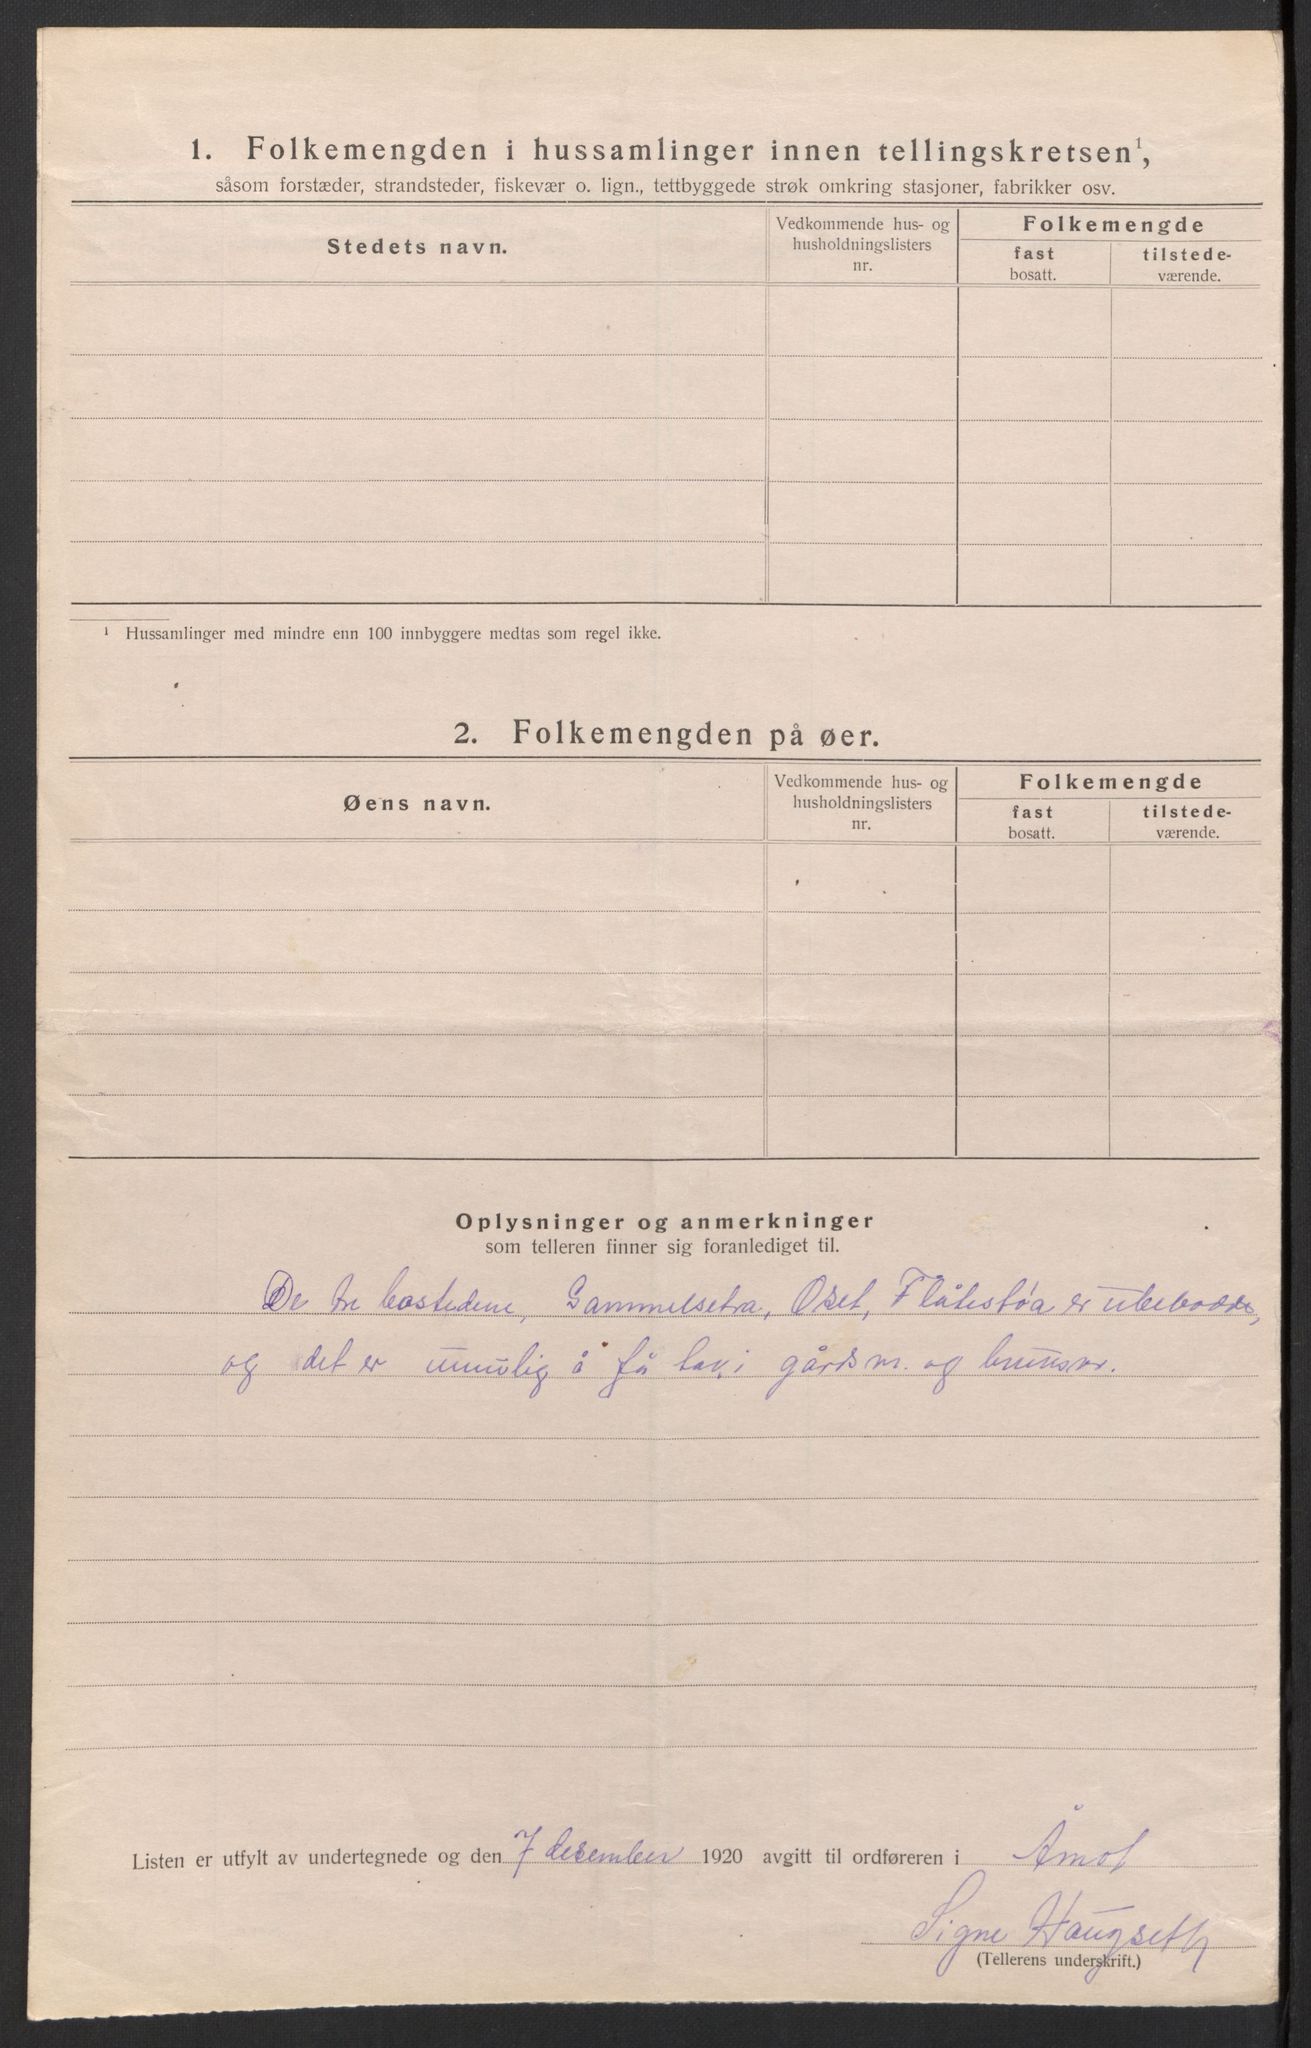 1. Folkemengden i hussamlinger innen tellingskretsen¹,
såsom forstæder, strandsteder, fiskevær o. lign., tettbyggede strøk omkring stasjoner, fabrikker osv.
Stedets navn.
Vedkommende hus- og
husholdningslisters
nr.
Folkemengde
fast
bosatt.
tilstede-
værende.
¹ Hussamlinger med mindre enn 100 innbyggere medtas som regel ikke.
2. Folkemengden på øer.
Øens navn.
Vedkommende hus- og
husholdningslisters
nr.
Folkemengde
fast
bosatt.
tilstede-
værende.
Oplysninger og anmerkninger
som telleren finner sig foranlediget til.
De tre bostedene, Gammelsetra, Oset, Flåtestøa er ubebodde,
og det er umulig å få tak i gårdsnr. og bruksnr.
Listen er utfylt av undertegnede og den 7 desember 1920 avgitt til ordføreren i Åmot
Signe Haugseth
(Tellerens underskrift.)